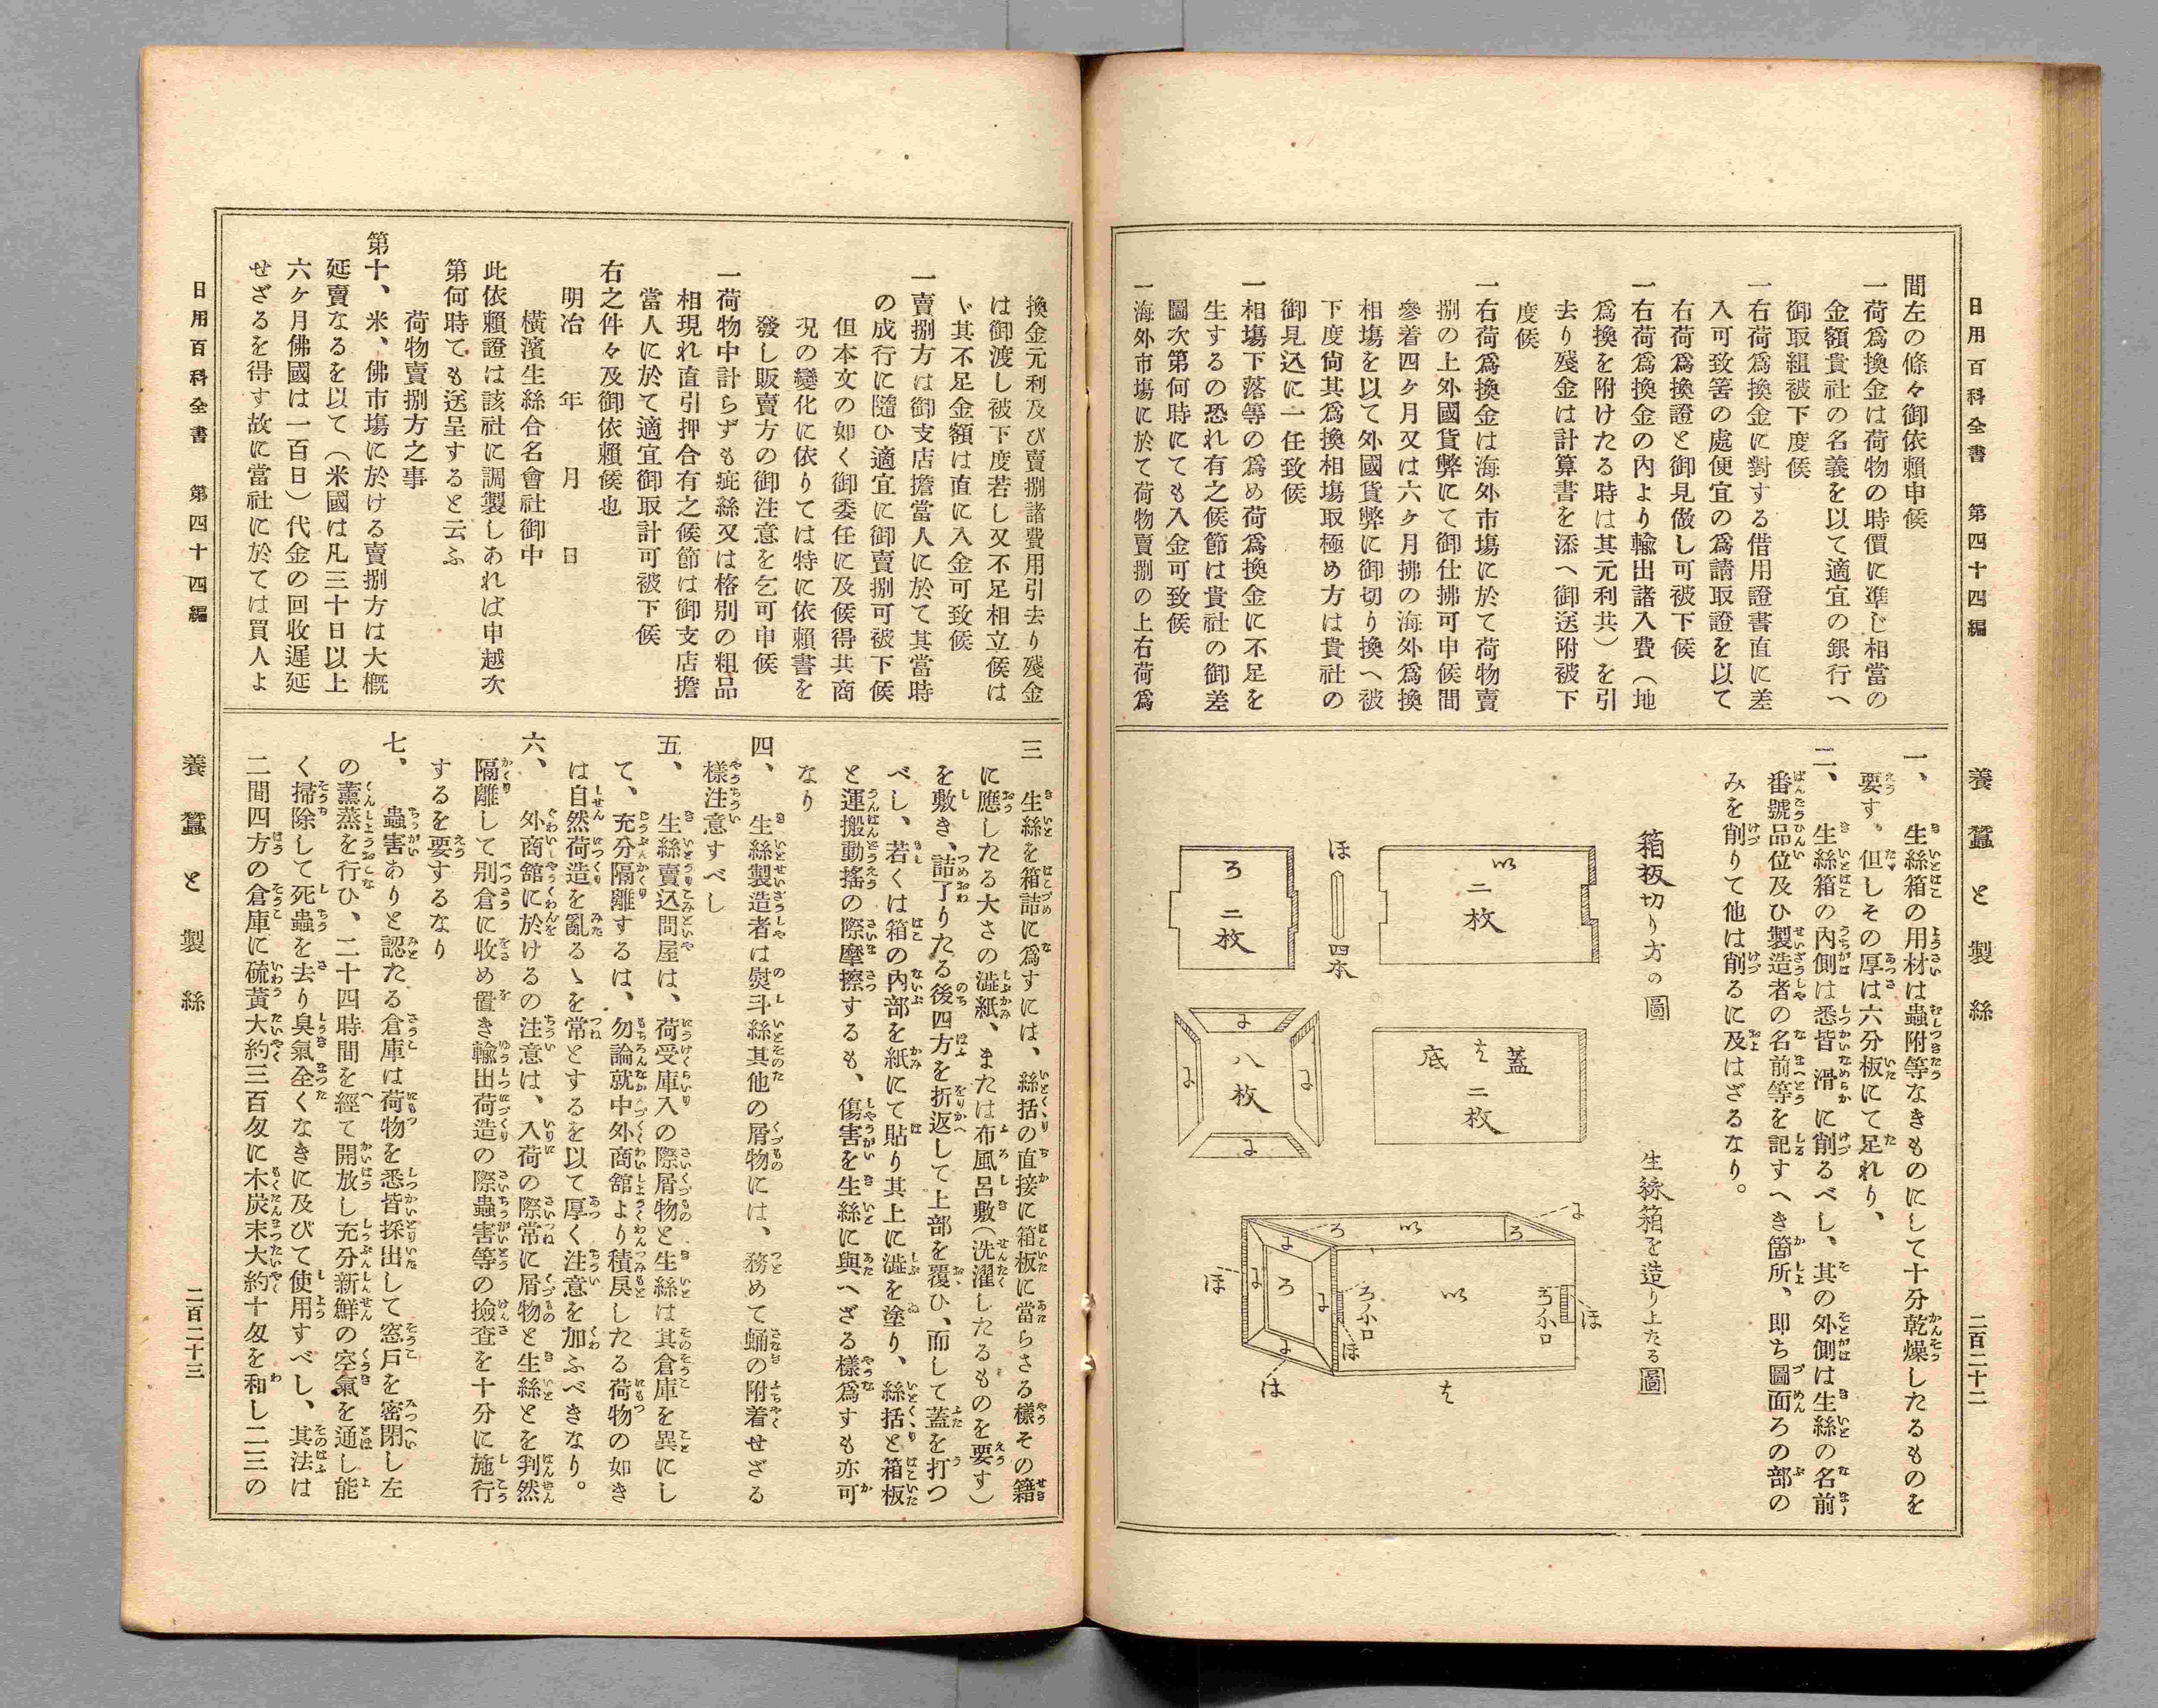 日用百科全書　第四十四編
養蠶と製絲
二百二十二
間左の條々御依賴申候
一荷爲換金は荷物の時價に準じ相當の
金額貴社の名義を以て適宜の銀行へ
御取組被下度候
一右荷爲換金に對する借用證書直に差
入可致筈の處便宜の爲請取證を以て
右荷爲換證と御見做し可被下候
一右荷爲換金の內より輸出諸入費（地
爲換を附けたる時は其元利共）を引
去り殘金は計算書を添へ御送附被下
度候
一右荷爲換金は海外市場に於て荷物賣
捌の上外國貨弊にて御仕拂可申候間
參着四ケ月又は六ケ月拂の海外爲換
相塲を以て外國貨弊に御切り換へ被
下度尙其爲換相塲取極め方は貴社の
御見込に一任致候
一相塲下落等の爲め荷爲換金に不足を
生するの恐れ有之候節は貴社の御差
圖次第何時にても入金可致候
一海外市塲に於て荷物賣捌の上右荷爲
一、生絲箱の用材は蟲附等なきものにして十分乾燥したるものを
要す。但しその厚は六分板にて足れり、
二、生絲箱の內側は悉皆滑に削るべし、其の外側は生絲の名前
番號品位及ひ製造者の名前等を記すへき箇所、即ち圖面ろの部の
みを削りて他は削るに及はざるなり。
箱板切り方の圖
い
二枚
ほ
四本
ろ
二枚
蓋
は
底
二枚
に
に
八枚
に
に
生絲箱を造り上たる圖
に
い
ろ
ろ
に
に
ろ
に
に
ほ
ろ小口
ほ
い
ろ小口
ほ
は
は
換金元利及び賣捌諸費用引去り殘金
は御渡し被下度若し又不足相立候は
ゞ其不足金額は直に入金可致候
一賣捌方は御支店擔當人に於て其當時
の成行に隨ひ適宜に御賣捌可被下候
但本文の如く御委任に及候得共商
況の變化に依りては特に依賴書を
發し販賣方の御注意を乞可申候
一荷物中計らずも疵絲又は格別の粗品
相現れ直引押合有之候節は御支店擔
當人に於て適宜御取計可被下候
右之件々及御依賴候也
明治　年　月　日
橫濱生絲合名會社御中
此依賴證は該社に調製しあれば申越次
第何時ても送呈すると云ふ
荷物賣捌方之事
第十、米、佛市塲に於ける賣捌方は大槪
延賣なるを以て（米國は凡三十日以上
六ケ月佛國は一百日）代金の回收遲延
せざるを得す故に當社に於ては買人よ
三　生絲を箱詰に爲すには、絲括の直接に箱板に當らさる樣その籍
に應したる大さの澁紙、または布風呂敷（洗濯したるものを要す）
を敷き、詰了りたる後四方を折返して上部を覆ひ、而して蓋を打つ
べし、若くは箱の內部を紙にて貼り其上に澁を塗り、絲括と箱板
と運搬動搖の際摩擦するも、傷害を生絲に與へざる樣爲すも亦可
なり
四、生絲製造者は熨斗絲其他の屑物には、務めて蛹の附着せざる
樣注意すべし
五、生絲賣込問屋は、荷受庫入の際屑物と生絲は其倉庫を異にし
て、充分隔離するは、勿論就中外商舘より積戾したる荷物の如き
は自然荷造を亂るゝを常とするを以て厚く注意を加ふべきなり。
六、外商館に於けるの注意は、入荷の際常に屑物と生絲とを判然
隔離して別倉に收め置き輸出荷造の際蟲害等の撿査を十分に施行
するを要するなり
七、蟲害ありと認たる倉庫は荷物を悉皆採出して窓戶を密閉し左
の薰蒸を行ひ、二十四時間を經て開放し充分新鮮の空氣を通し能
く掃除して死蟲を去り臭氣全くなきに及びて使用すべし、其法は
二間四方の倉庫に硫黃大約三百匁に木炭末大約十匁を和し二三の
日用百科全書　第四十四編
養蠶と製絲
二百二十三